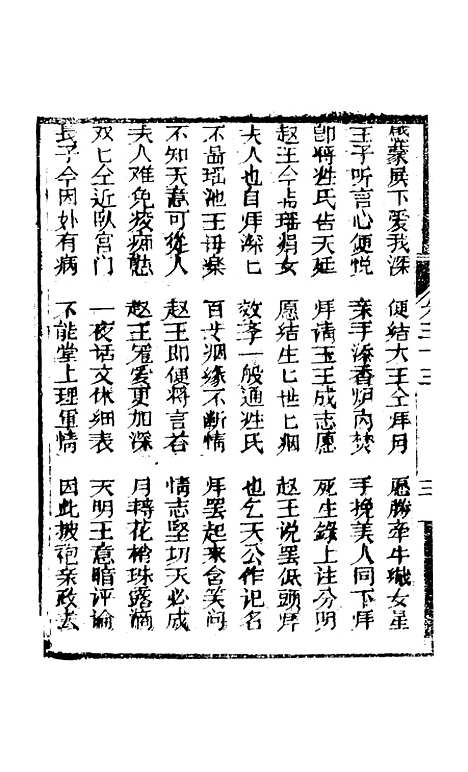 感蒙殿下爱我深 便結大王仝拜月 愿勝牵牛職女星
王子听言心便悦 亲手添香炉内焚 手挽美人同下拜
即将姓氏告天延 拜請玉王成志愿 死生錄上注分明
赵王今与瑶娟女 愿结生匕世匕烟 赵王说罢低頭拜
夫人也自拜深匕 效李一般通姓氏 也乞天公作记名
不啚瑶池王母楽 百廿烟缘不断情 拜罢起来含笑问
不知天意可從人 赵王即便将言答 情志堅切天必成
夫人难免痴憨 赵王宠爱更加深 月轉花梢珠露滴
双匕仝近卧宫门 一夜话文休细表 天明王意暗评論
長子今因外有病 不能堂上理軍情 因此披袍亲政去
三十三 三